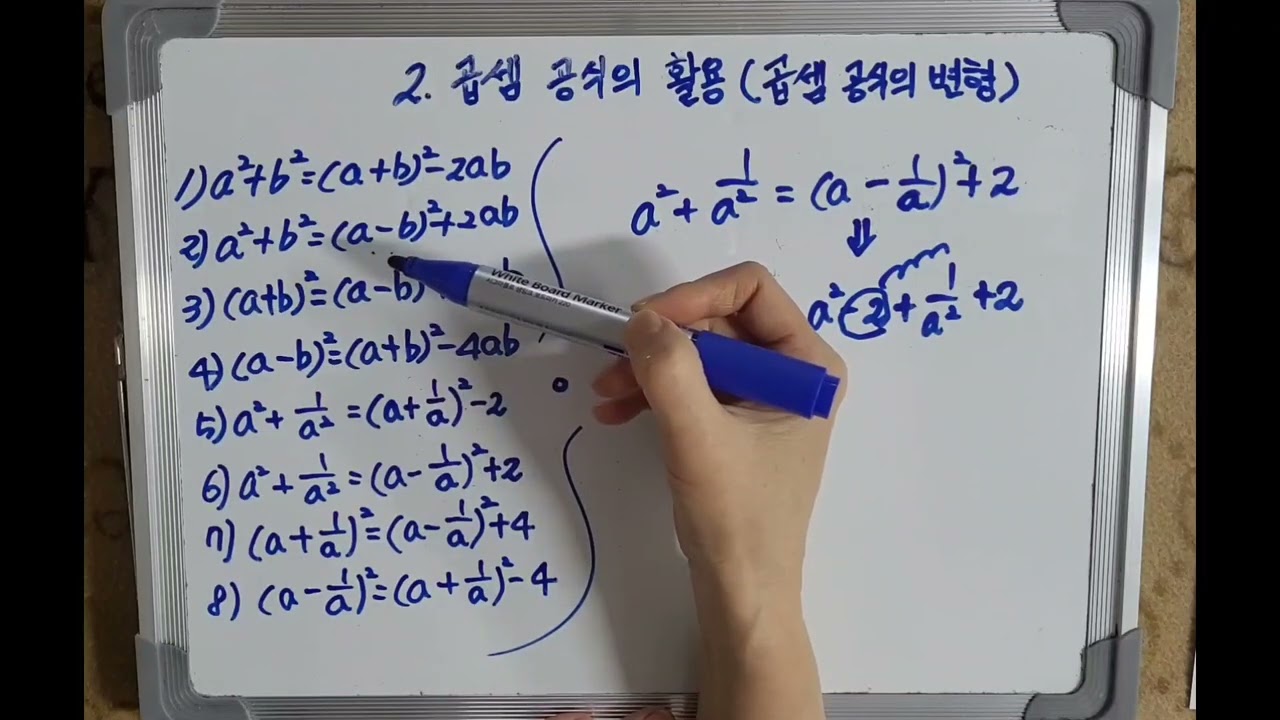 2. 곱셈 공식의 활용 (곱셈 공식의 변형)
1) a²+b²=(a+b)²-2ab
2) a²+b²=(a-b)²+2ab
3) (a+b)²=(a-b)
4) (a-b)²=(a+b)²-4ab
5) a²+1/a²=(a+1/a)²-2
6) a²+1/a²=(a-1/a)²+2
7) (a+1/a)²=(a-1/a)²+4
8) (a-1/a)²=(a+1/a)²-4
a²+1/a²=(a-1/a)²+2
⇓
a²-2+1/a²+2
White Board Marker